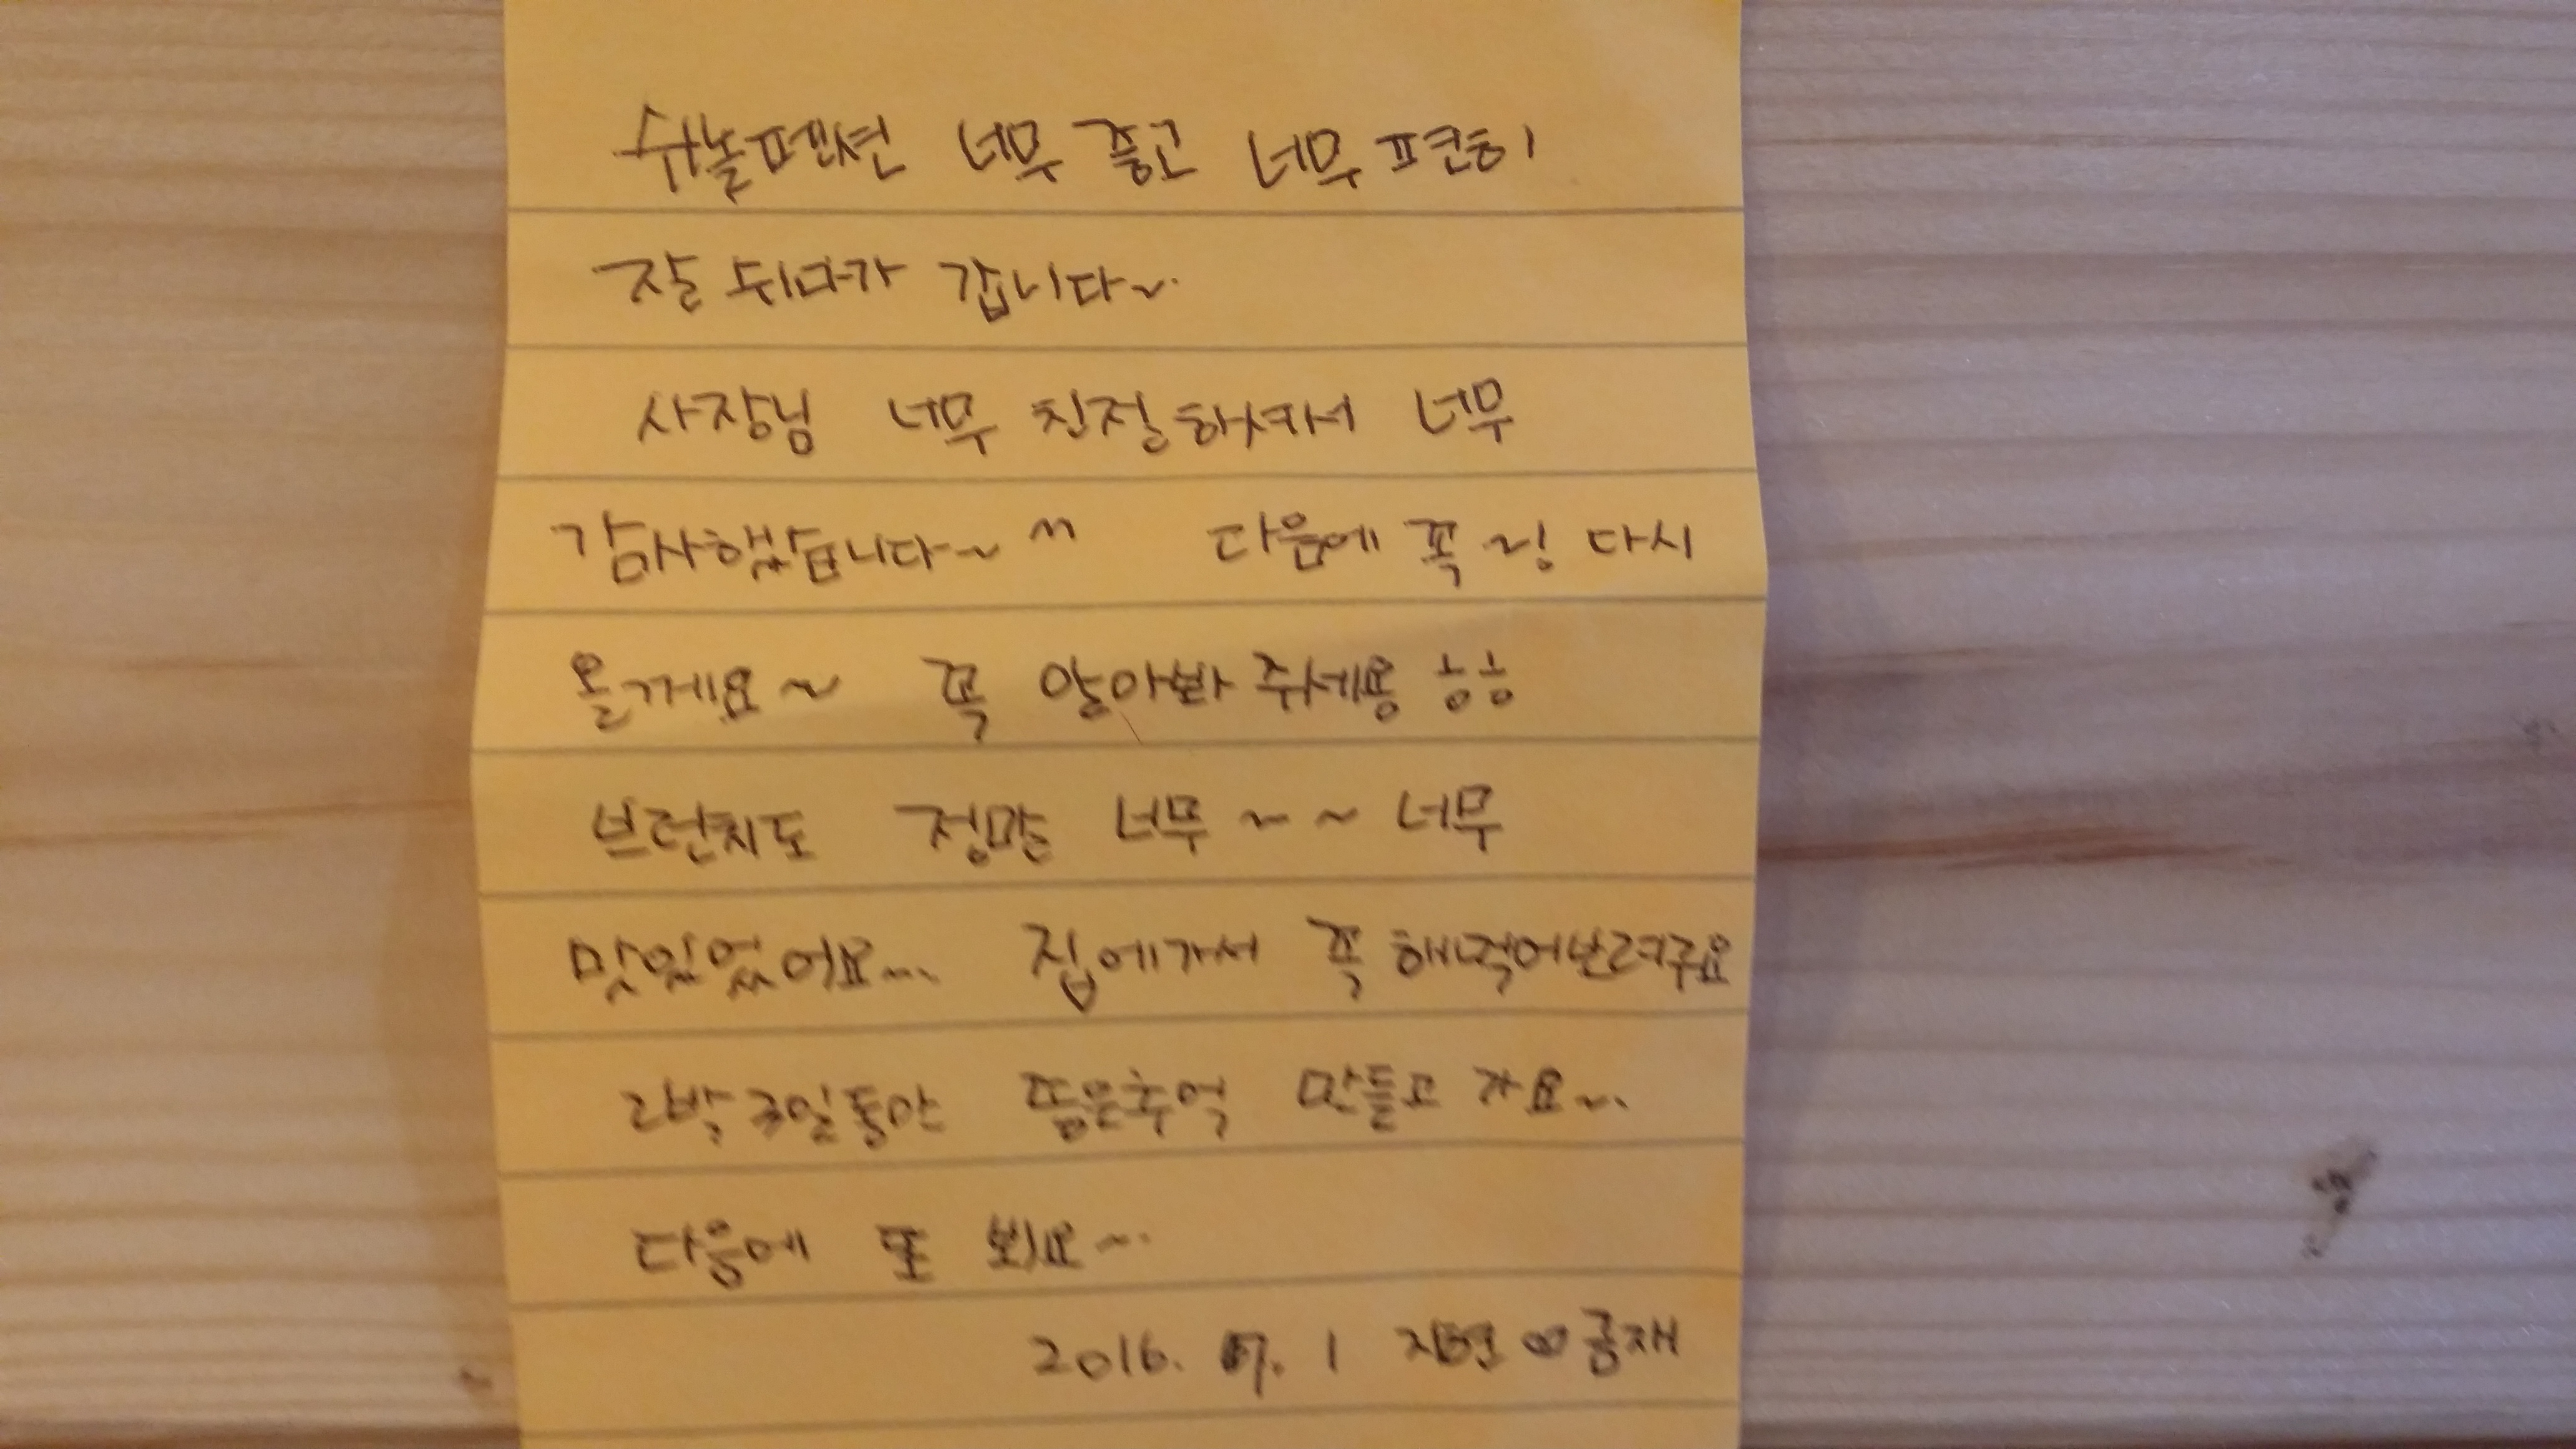 쉬놀펜션 너무 좋고 너무 편히
잘 쉬다가 갑니다~
사장님 너무 친절하셔서 너무
감사했습니다~ ^^ 다음에 꼭~! 다시
올게요~ 꼭 알아봐 주세용 ㅎㅎ
브런치도 정말 너무~~ 너무
맛있었어요~.. 집에가서 꼭 해먹어보려구요
2박 3일동안 좋은추억 만들고 가요~..
다음에 또 뵈요~..
2016. 7. 1 지현 ∞